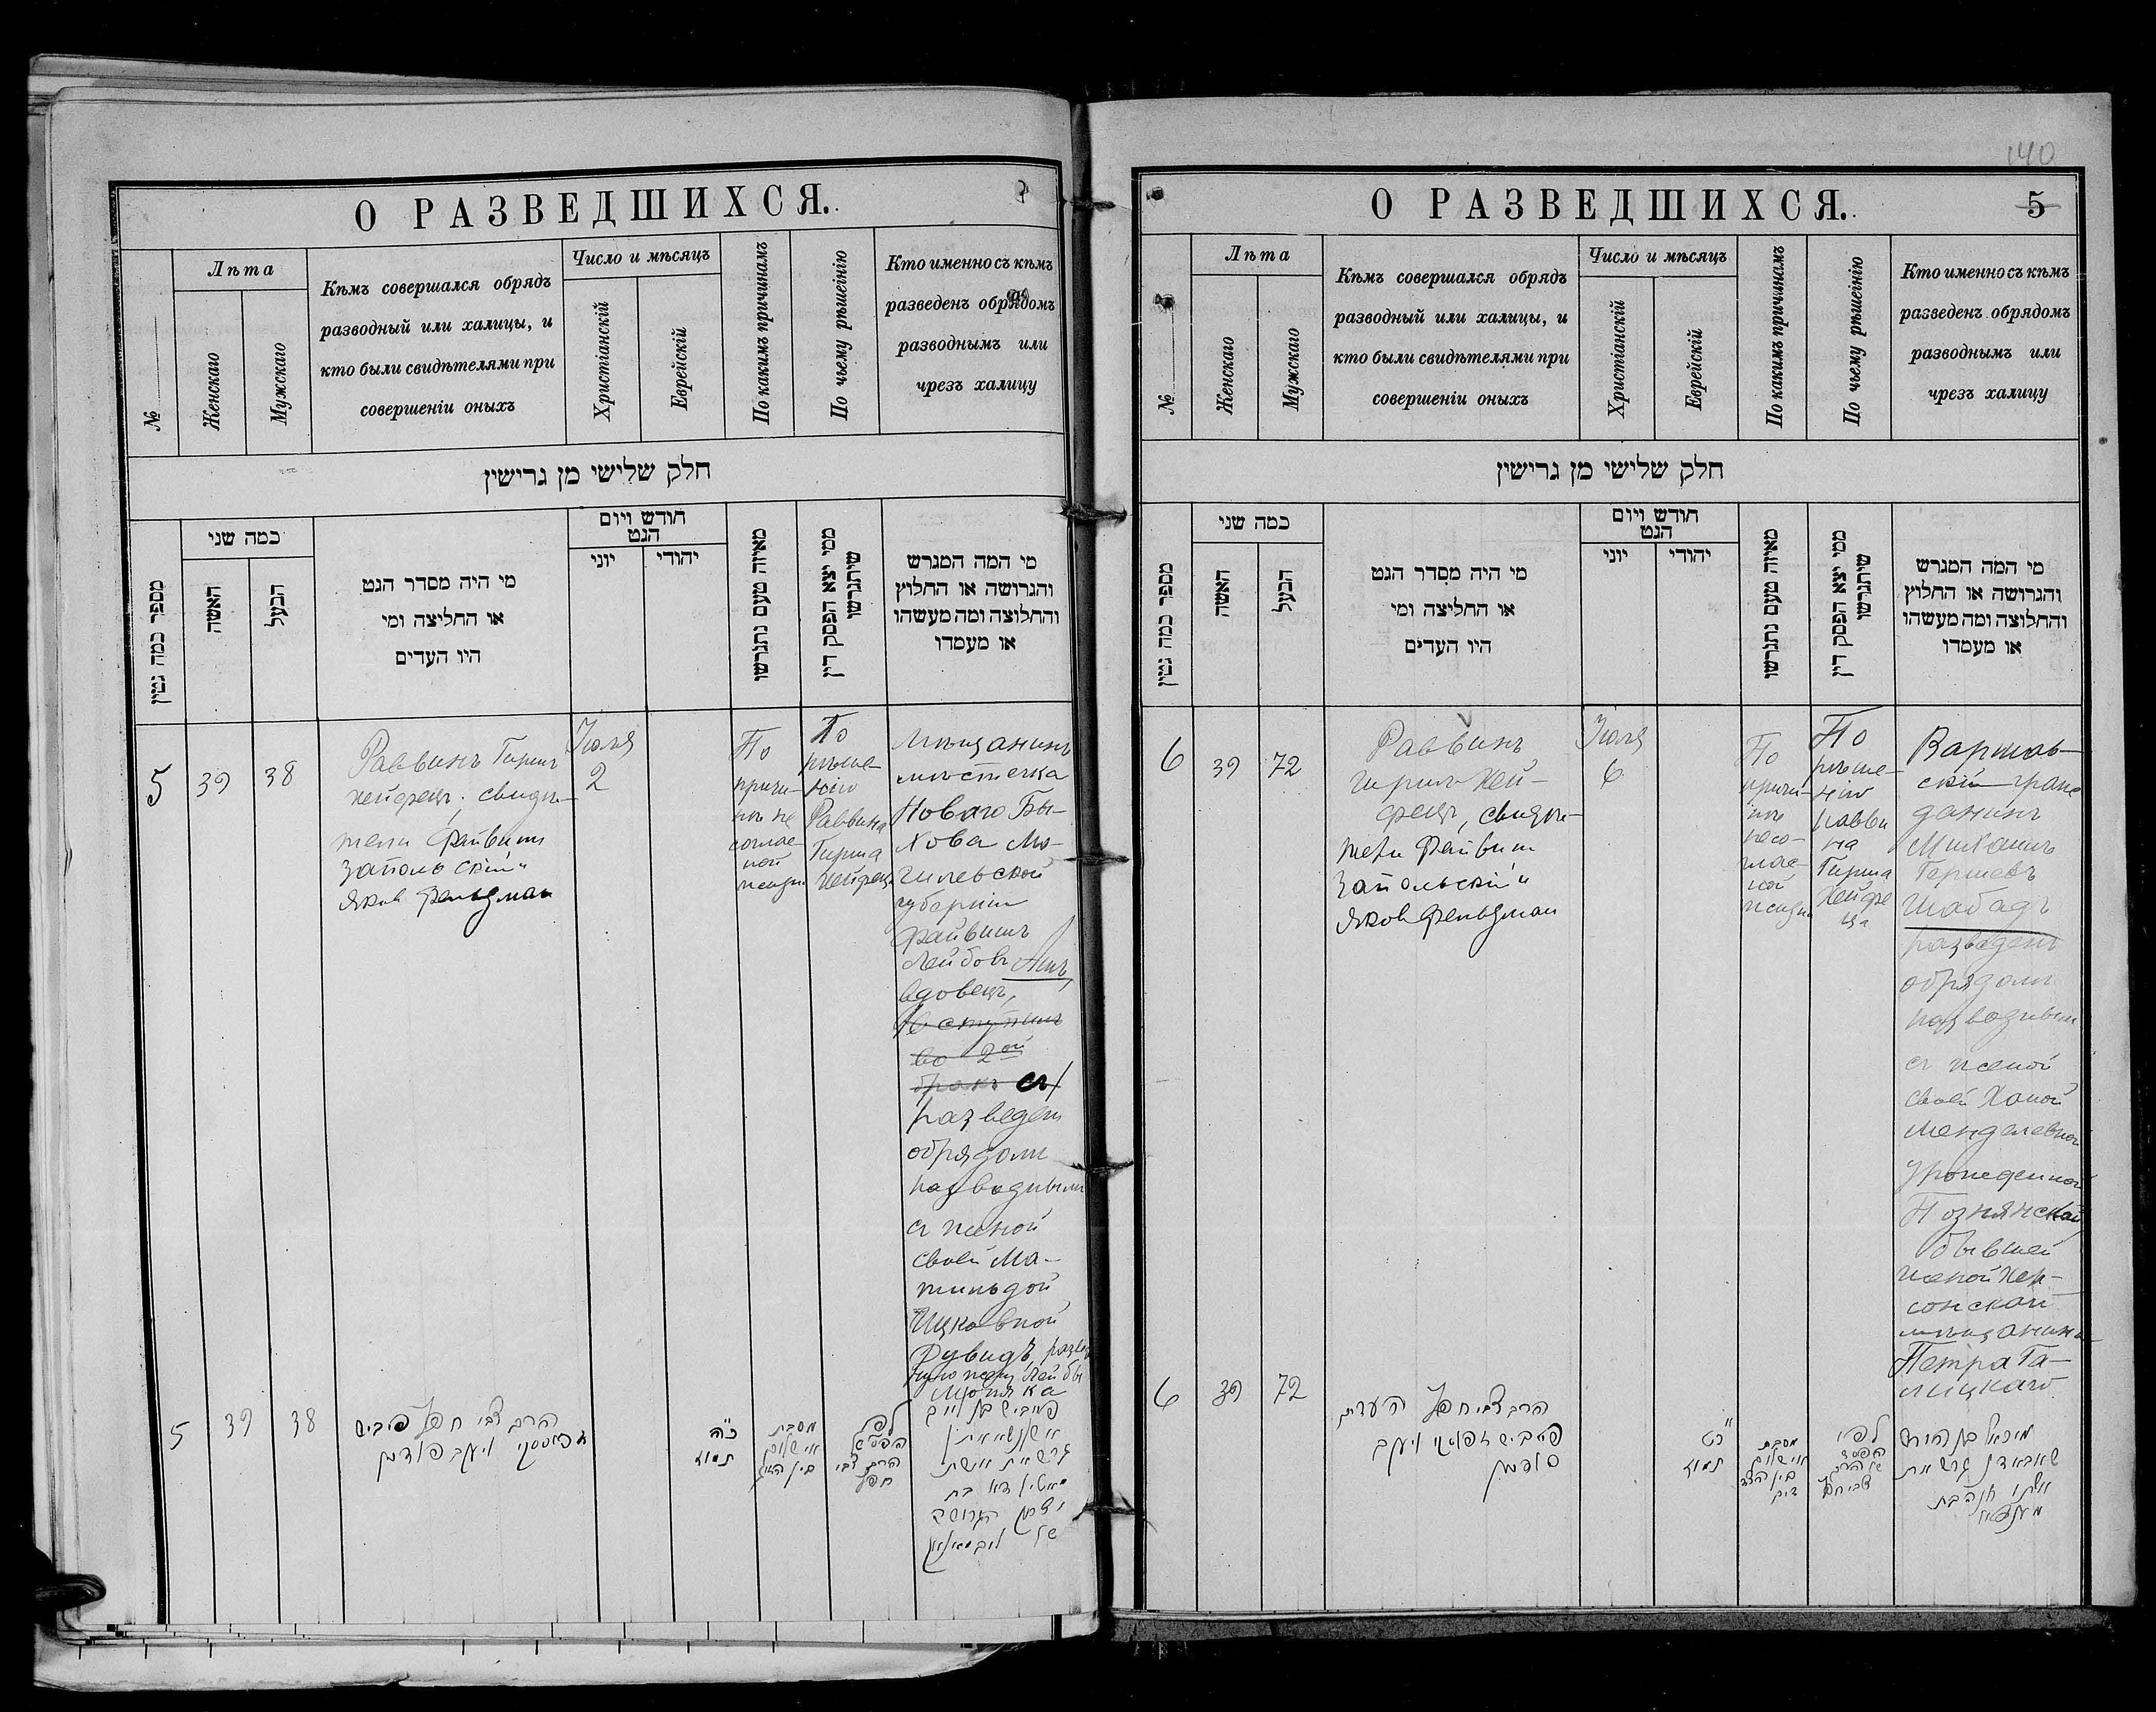 О РАЗВЕДШИХСЯ.
№
Лѣта
Женскаго
Мужскаго
Кѣмъ совершался обрядъ
разводный или халицы, и
кто были свидѣтелями при
совершеніи оныхъ
Число и мѣсяцъ
Христіанскій
Еврейскій
По какимъ причинамъ
По чьему рѣшенію
Кто именно съ кѣмъ
разведенъ обрядомъ
разводнымъ или
чрезъ халицу
חלק שלישי מן גרישין
מספר כמה גטין
כמה שני
האשה
הבעל
מי היה מסדר הגט
או החליצה ומי
היו העדים
חודש ויום
הגט
יוני
יהודי
מאיזה טעם נתגרשו
ממי יצא הפסק דין
שיתגרשו
מי המה המגרש
והגרושה או החלוץ
והחלוצה ומה מעשהו
או מעמדו
5
39
38
Раввинъ Гиршъ
Хейфецъ, свидѣ-
тели Файвишъ
Запольскій и
Яковъ Фельдман
Іюля
2
По
причи-
нѣ не
соглас-
ной
жизни
По
рѣше-
нію
Раввина
Гирша
Хейфеца
Мѣщанинъ
мѣстечка
Новаго Бы-
хова Мо-
гилевской
губерніи
Файвишъ
Лейбовъ
вдовецъ,
вступилъ
во 2ой
бракъ съ
разведенъ
обрядомъ
разводнымъ
съ женой
своей Ма-
тильдой
Ицковной
5
39
38
הרב צבי חפץ פייביש
ויעקב פעלדמן
כ"ה
תמוז
מסבת
אי שלום
בין הזוג
לפי
הפס"ד של
הרב צבי
חפץ
פייביש בן לייב
140
О РАЗВЕДШИХСЯ.
5
№
Лѣта
Женскаго
Мужскаго
Кѣмъ совершался обрядъ
разводный или халицы, и
кто были свидѣтелями при
совершеніи оныхъ
Число и мѣсяцъ
Христіанскій
Еврейскій
По какимъ причинамъ
По чьему рѣшенію
Кто именно съ кѣмъ
разведенъ обрядомъ
разводнымъ или
чрезъ халицу
חלק שלישי מן גרישין
מספר כמה גטין
כמה שני
האשה
הבעל
מי היה מסדר הגט
או החליצה ומי
היו העדים
חודש ויום
הגט
יוני
יהודי
מאיזה טעם נתגרשו
ממי יצא הפסק דין
שיתגרשו
מי המה המגרש
והגרושה או החלוץ
והחלוצה ומה מעשהו
או מעמדו
6
39
72
Раввинъ
Гиршъ Хей-
фецъ, свидѣ-
тели Файвиш
Запольскій и
Яковъ Фельдман
Іюля
6
По
причи-
нѣ
несо-
глас-
ной
жизни
По
рѣше-
нію
равви
на
Гирша
Хейфе
ца
Варшав-
скій граж
данинъ
Михаилъ
Гершевъ
Шабадъ
разведенъ
обрядомъ
разводнымъ
съ женой
своей Ханой
Менделевной
урожденной
Познянской
бывшей
женой Хер-
сонскаго
мѣщанина
Петра Га-
лицкаго
6
39
72
הרב צבי חפץ העדים
כ"ט
תמוז
מסבת
אי שלום
לפי
הפסד
של הרב
צבי חפץ